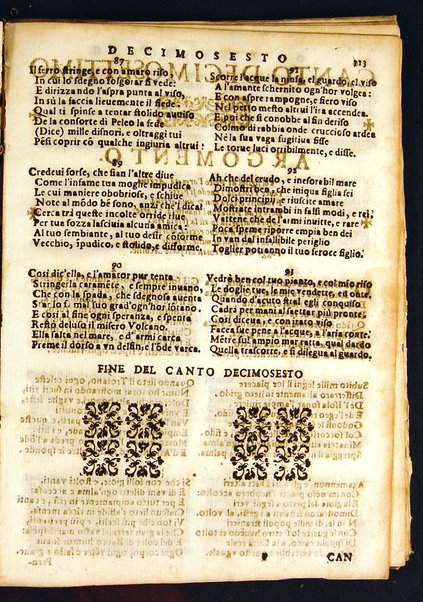 DECIMOSESTO
213
87
Il ferro stringe, e con amaro riso
In cui lo sdegno folgorar si vede:
E dirizzando l'aspra punta al viso,
In sù la faccia lieuemente il fiede.
Qual ti spinse a tentar stolido auuiso
De la consorte di Peleo la fede
(Dice) mille disnori, e oltraggi tui
Pẽsi coprir cô qualche ingiuria altrui?
89
Credeui forse, che sian l'altre diue
Come l'infame tua moglie impudica
Le cui maniere obobriose, e schiue
Note al mõdo bẽ sono, anzi che'l dica!
Cerca trà queste incolte orride riue
Per tua sozza lasciuia alcuna amica:
Al tuo sembiante, al tuo desir côforme
Vecchio, ĩpudico, e stolido, e difforme.
90
Cosi dic'ella, e l'amator pur tenta
Stringerla caramẽte, e sempre inuano,
Che con la spada, che sdegnosa auenta
Star lo fà mal suo grad'ogn'hor lôtano.
E cosi al fine ogni speranza, e spenta
Restò deluso il misero Volcano.
Ella salta nel mare, e d'armi carca
Preme il dorso a vn delfin, e l'õde varca.
Scorre l'acque la ninfa, el guardo, el viso
A l'amante schernito ogn'hor volgea:
E con aspre rampogne, e fiero viso
Nel petto mesto altrui l'ira accendea.
E poi che si conobbe al fin deriso
Colmo di rabbia onde cruccioso ardea
Nè la sua vaga fugitiua fisse
Le torue luci orribilmente, e disse.
92
Ah che del crudo, e inesorabil mare
Dimostri ben, che iniqua figlia sei
Dolci principij, e riuscite amare
Mostrate intrambi in falsi modi, e rei;
Vattene che de l'armi inuitte, e rare
Poca speme riporre empia ben dei
In van dal infallibile periglio
Toglier potranno il tuo feroce figlio.
93
Vedrò ben col tuo pianto, e col mio riso
Le doglie tue, la mie vendette, ed onte.
Quando d'acuto stral egli conquiso
Cadrà per man al saettar più pronte.
Così diceua, e con irato viso
Facea sue pene a l'acqua, a l'aria conte.
Mẽtre sul ampio mar ratta, qual dardo
Quella trascorre, e si dilegua al guardo.
FINE DEL CANTO DECIMOSESTO
CAN